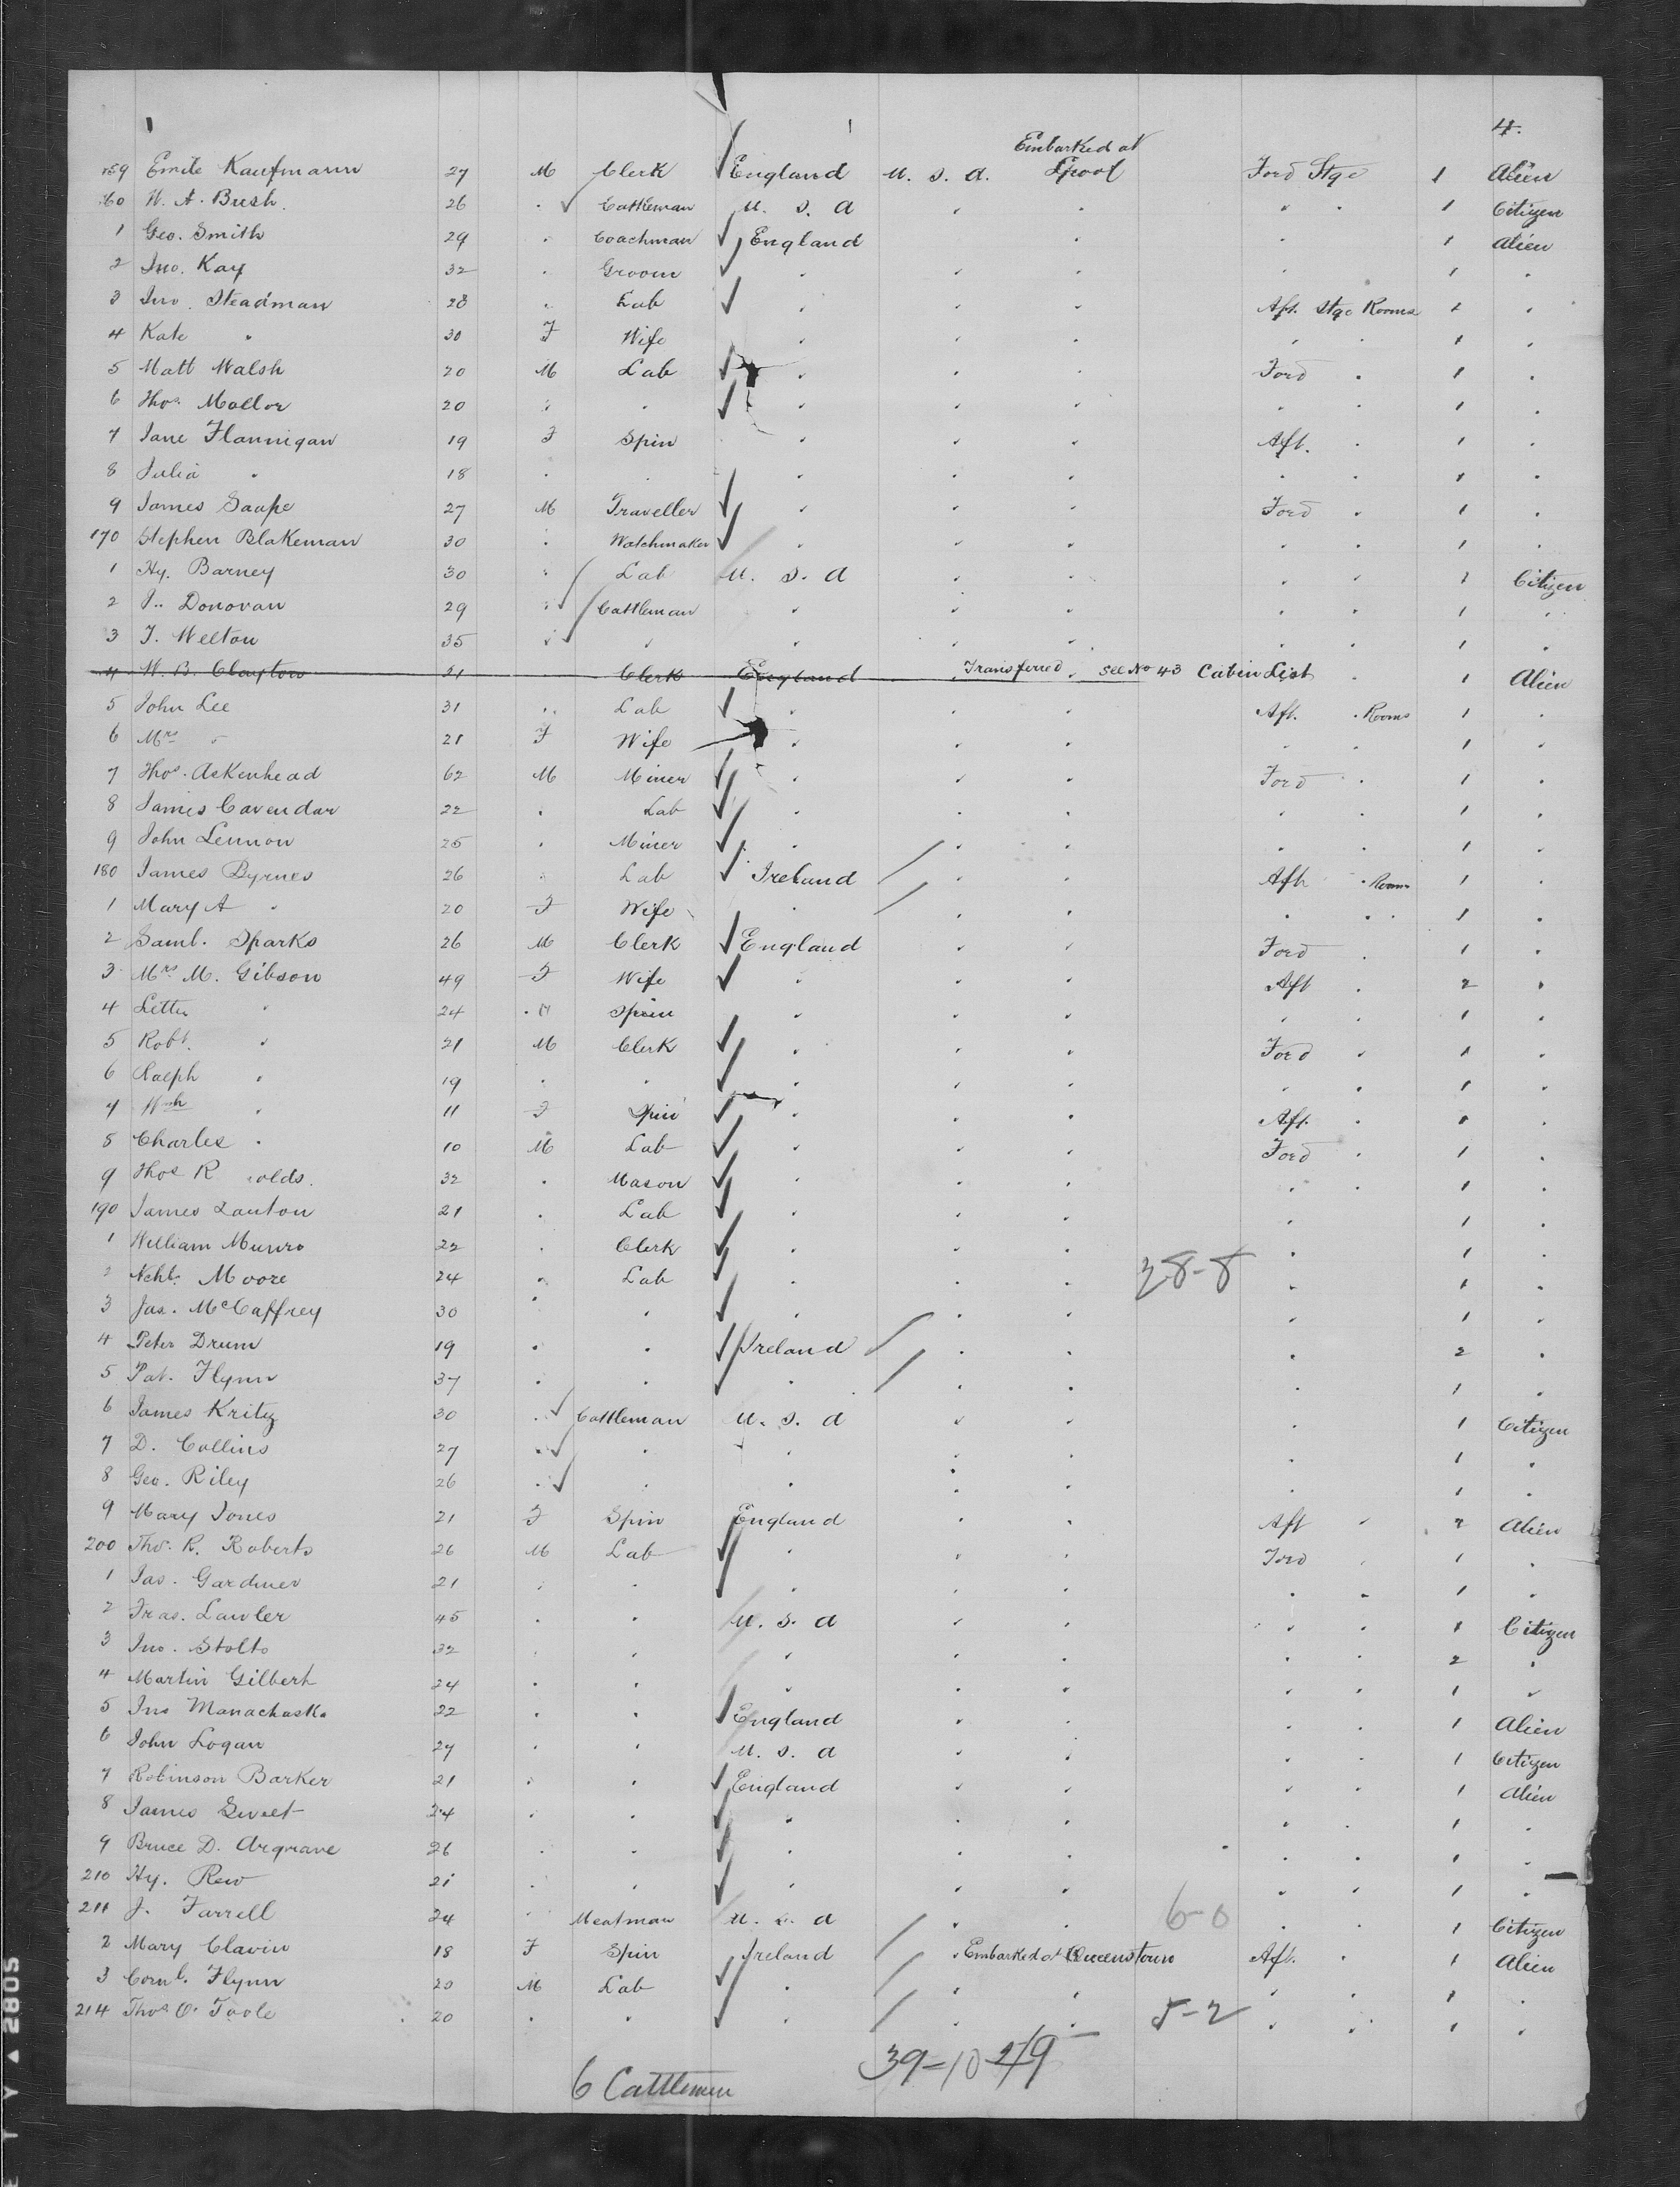 4.
Embarked at
159 Emile Kaufmann 27 M Clerk England U. S. A. L'pool Ford Stge 1 Alien
60 W. A. Bush. 26 " Cattleman U. S. A " " " " 1 Citizen
1 Geo. Smith 29 " Coachman England " " 1 Alien
2 Jno. Kay 32 " Groom " " " " 1 "
3 Jno. Steadman 28 " Lab " " " Aft. Stge Rooms 1 "
4 Kate " 30 F Wife " " " " " 1 "
5 Matt Walsh 20 M Lab " " " Ford " 1 "
6 Thos. Mallor 20 " " " " " " " 1 "
7 Jane Flannigan 19 F Spin " " " Aft. " 1 "
8 Julia " 18 " " " " " " " 1 "
9 James Saape 27 M Traveller " " " Ford " 1 "
170 Stephen Blakeman 30 " Watchmaker " " " " " 1 "
1 Hy. Barney 30 " Lab U. S. A " " " " 1 Citizen
2 J.. Donovan 29 " Cattleman " " " " " 1 "
3 J. Welton 35 " " " " " " " 1 "
4 W. B. Clayton 51 Clerk England Transferred. See No 43 Cabin List " 1 Alien
5 John Lee 31 " Lab " " " Aft. " Rooms 1 "
6 Mrs " 21 F Wife " " " " " 1 "
7 Thos. Askenhead 62 M Miner " " " Ford " 1 "
8 James Cavendar 22 " Lab " " " " " 1 "
9 John Lennon 25 " Miner " " " " " 1 "
180 James Byrnes 26 " Lab Ireland " " Aft " Rooms 1 "
1 Mary A " 20 F Wife " " " " " " 1 "
2 Saml. Sparks 26 M Clerk England " " Ford " 1 "
3 Mrs M. Gibson 49 F Wife " " " Aft " 2 "
4 " 24 " Spin " " " " " 1 "
5 Robt. " 21 M Clerk " " " Ford " 1 "
6 Ralph " 19 " " " " " " " 1 "
7 " 11 F Spin " " " Aft. " 1 "
8 Charles " 10 M Lab " " " Ford " 1 "
9 Thos R olds. 32 " Mason " " " " " 1 "
190 James Lanton 21 " Lab " " " " 1 "
1 William Munro 22 " Clerk " " " " 1 "
2 Moore 24 " Lab " " " 28-8 " 1 "
3 Jas. McCaffrey 30 " " " " " " 1 "
4 Peter Drum 19 " " Ireland " " " 2 "
5 Pat. Flynn 37 " " " " " " 1 "
6 James Kritz 30 " Cattleman U. S. A " " " 1 Citizen
7 D. Collins 27 " " " " " " 1 "
8 Geo. Riley 26 " " " " " " 1 "
9 Mary Jones 21 F Spin England " " Aft " 2 Alien
200 Tho. R. Roberts 26 M Lab " " " Ford " 1 "
1 Jas. Gardiner 21 " " " " " " " 1 "
2 Fras. Lawler 45 " " U. S. A " " " " 1 Citizen
3 Jno. Stolts 32 " " " " " " " 2 "
4 Martin Gilbert 24 " " " " " " " 1 "
5 Jno Manachaska 22 " " England " " " " 1 Alien
6 John Logan 27 " " U. S. A " " " " 1 Citizen
7 Robinson Barker 21 " " England " " " " 1 Alien
8 James Sweet 24 " " " " " " " 1 "
9 Bruce D. Argrave 26 " " " " " " " 1 "
210 Hy. Rew 21 " " " " " " " 1 "
211 J. Farrell 24 " Meatman U. S. A " " 6-0 " " 1 Citizen
2 Mary Clavin 18 F Spin Ireland " Embarked at Queenstown Aft. " 1 Alien
3 Cornl. Flynn 20 M Lab " " " " " 1 "
214 Thos O. Toole 20 " " " " " 5-2 " " 1 "
39-10 49
6 Cattlemen
2805